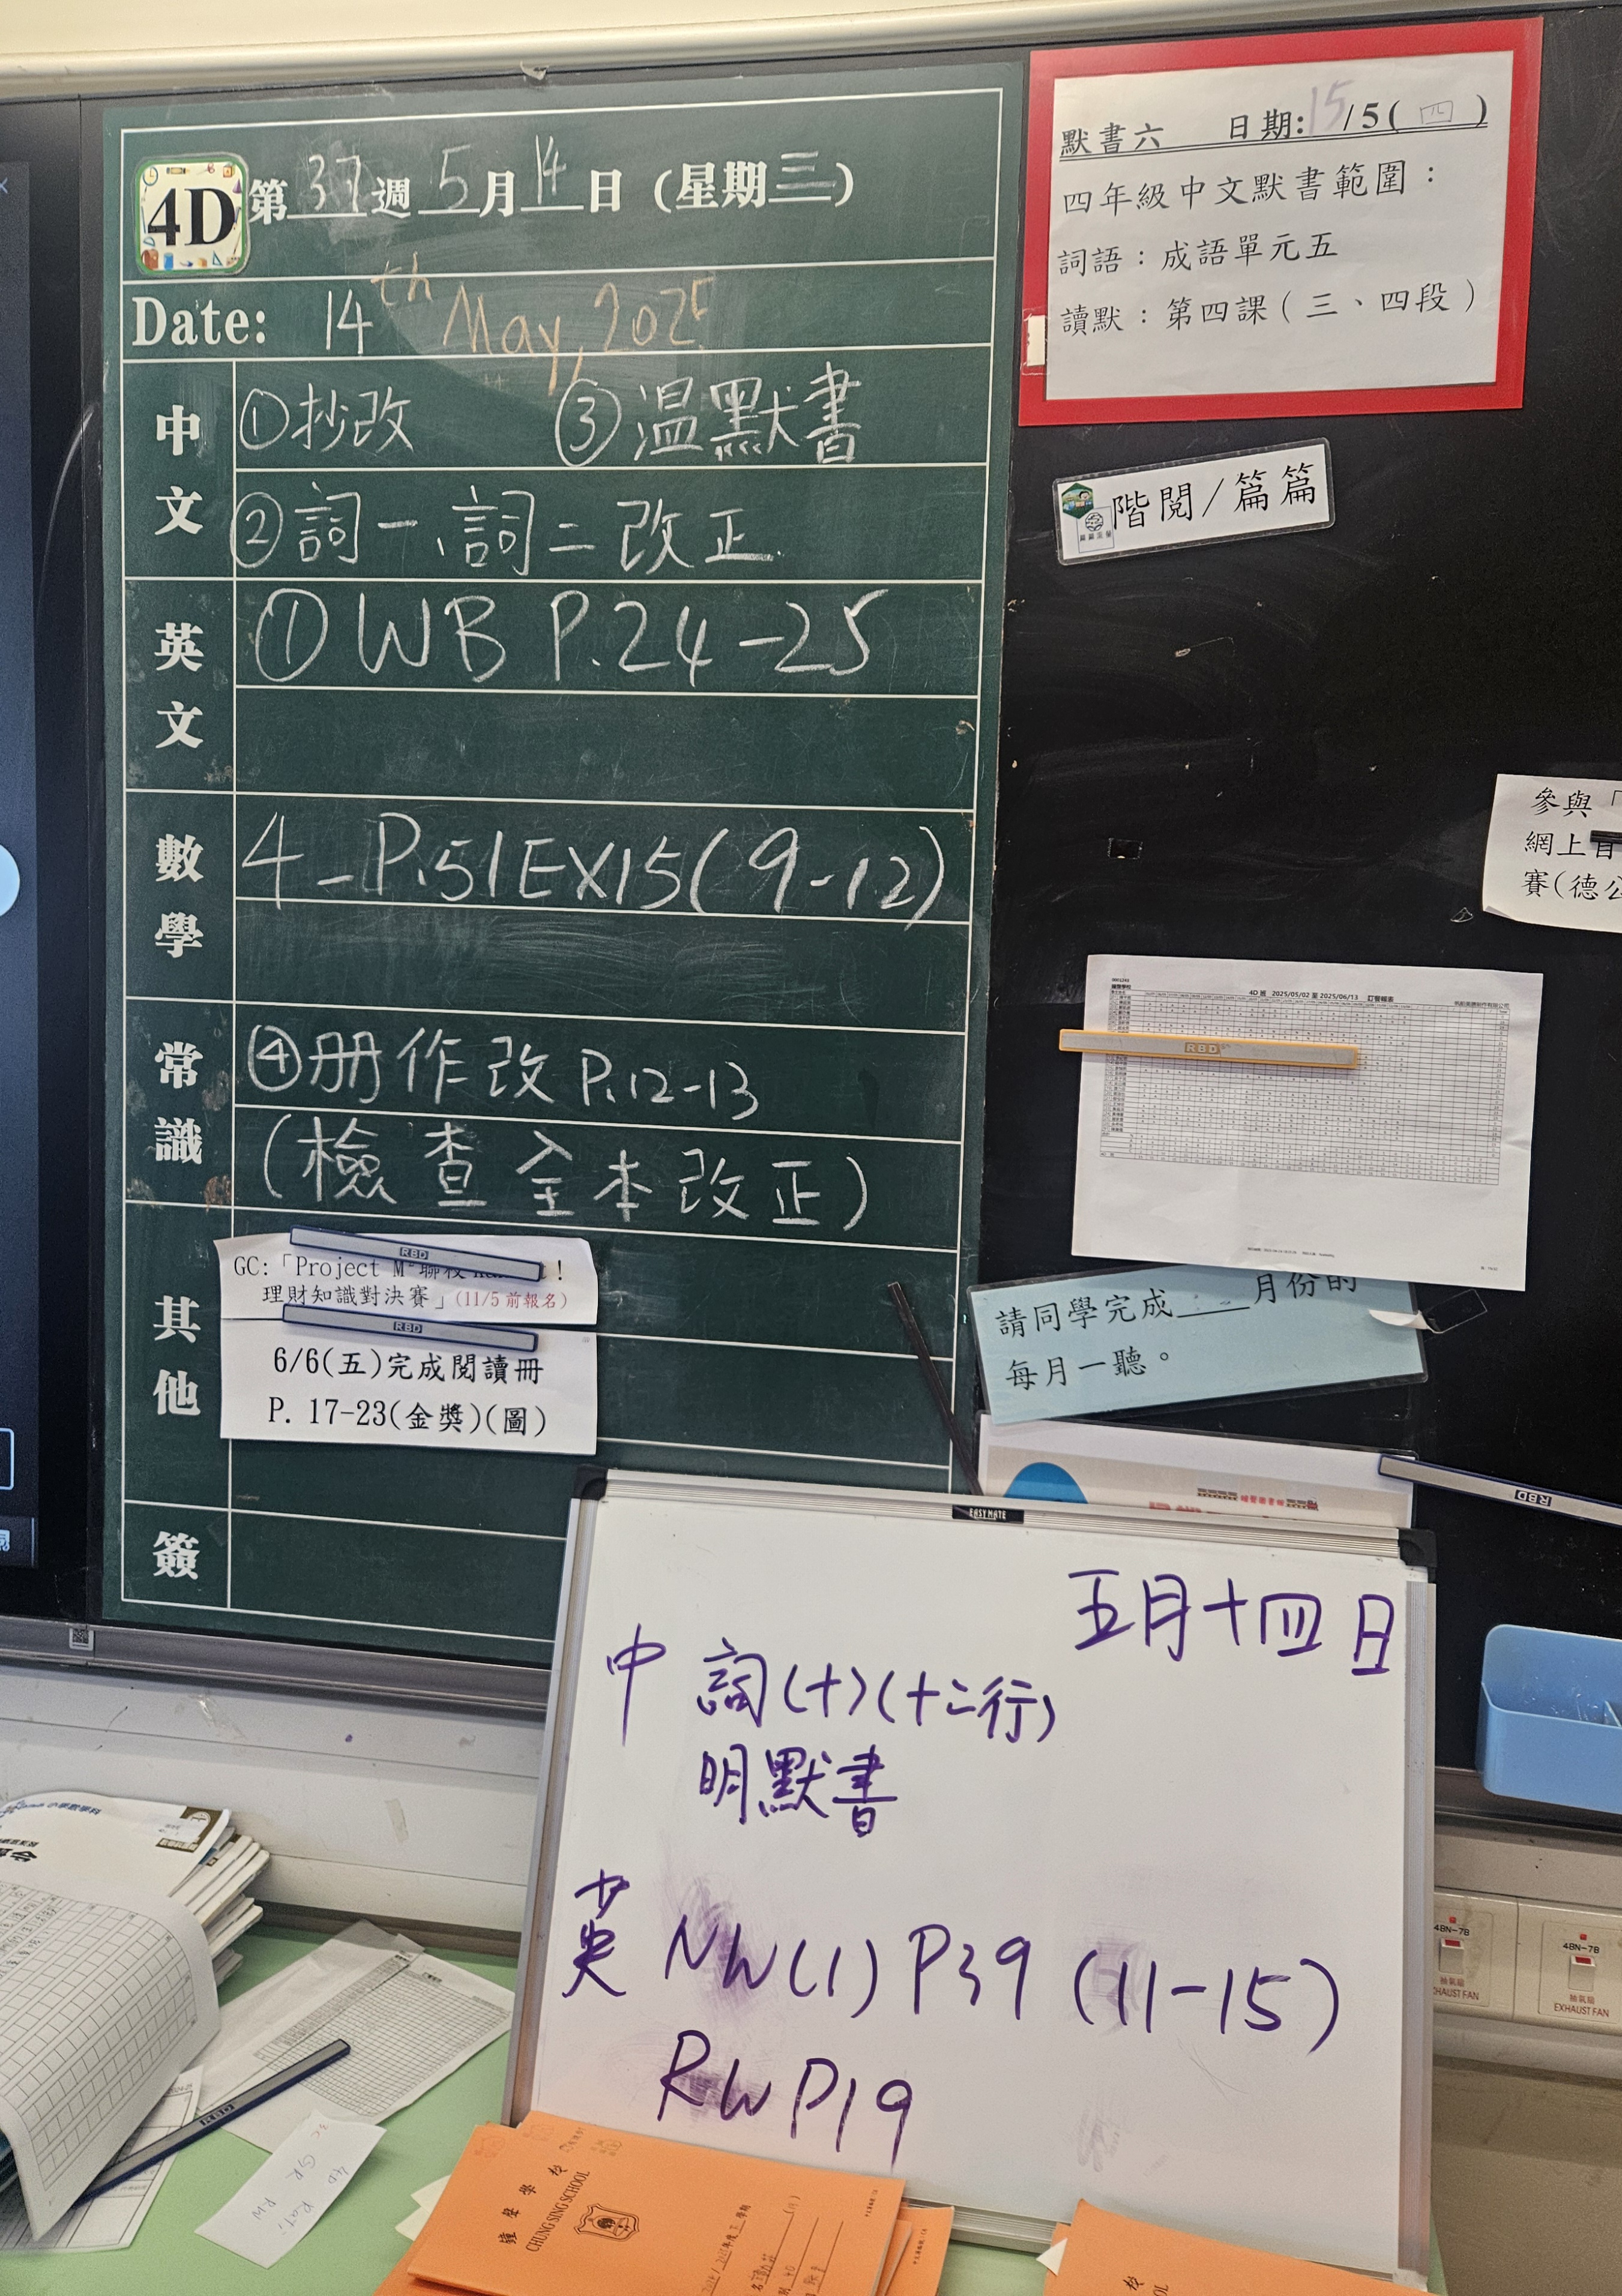 4D 第37週5月14日(星期三)
Date: 14th May, 2025
中文
①抄改 ③溫默書
②詞一、詞二改正
英文
①WB P.24-25
數學
4-P.51EX15(9-12)
常識
④册作改P.12-13
(檢查全本改正)
其他
GC:「Project M-聯校
理財知識對決賽」(11/5前報名)
6/6(五)完成閱讀冊
P. 17-23(金獎)(圖)
簽
默書六 日期:15/5(四)
四年級中文默書範圍：
詞語：成語單元五
讀默：第四課(三、四段)
階閱/篇篇
參與「
網上
賽(德公
4D 班 2025/05/02 至 2025/06/13 訂餐報表
RBD
請同學完成___月份的
每月一聽。
RBD
RBD
RBD
EASYMATE
五月十四日
中 詞(十)(十二行)
明默書
英 NW(1) P39 (11-15)
RW P19
4BN-7B
抽氣扇
EXHAUST FAN
4BN-7B
抽氣扇
EXHAUST FAN
RBD
鐘聲學校
CHUNG SING SCHOOL